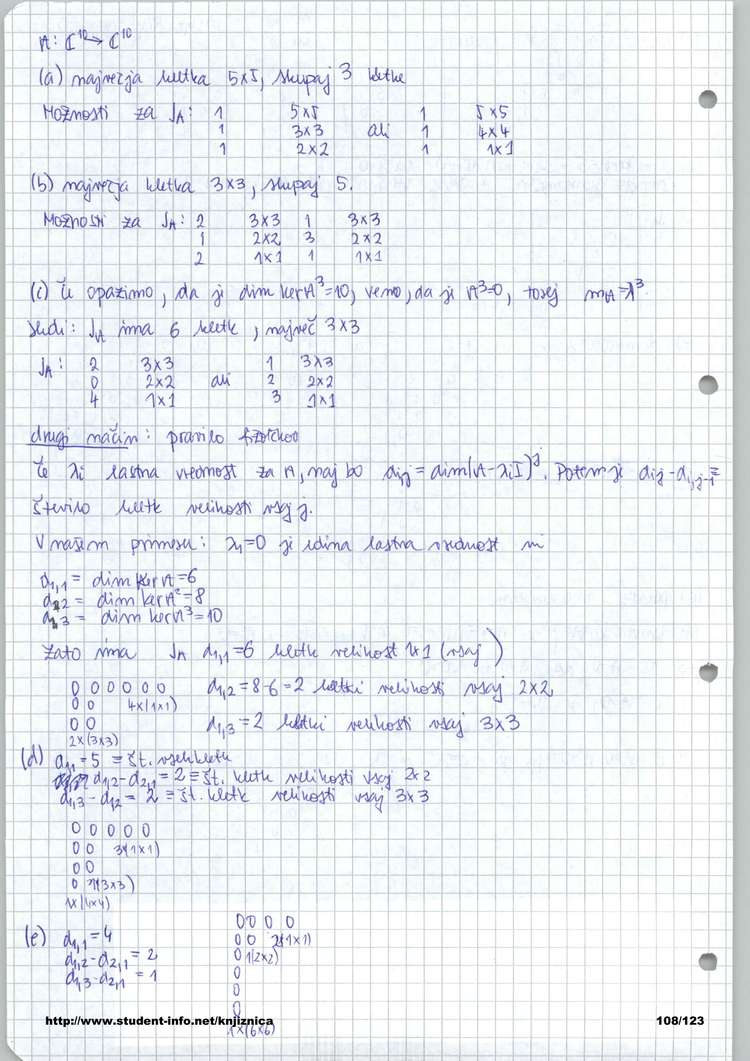 A: ℂ¹⁰ → ℂ¹⁰
(a) največja kletka 5×5, skupaj 3 kletke
Možnosti za J_A: 1 5×5 1 5×5
1 3×3 ali 1 4×4
1 2×2 1 1×1
(b) največja kletka 3×3, skupaj 5.
Možnosti za J_A: 2 3×3 1 3×3
1 2×2 3 2×2
2 1×1 1 1×1
(c) Če opazimo, da je dim ker A³=10, vemo, da je A³=0, torej m_A=λ³
sledi: J_A ima 6 kletk, največ 3×3
J_A: 2 3×3 1 3×3
0 2×2 ali 2 2×2
4 1×1 3 1×1
drugi način: pravilo
Če λi lastna vrednost za A, naj bo d_ij = dim(A-λiI)^j. Potem je d_ij - d_1,j-1 =
število kletk velikosti vsaj j.
V našem primeru: λ₁=0 je edina lastna vrednost in
d₁,₁ = dim ker A = 6
d₂2 = dim ker A² = 8
3 = dim ker A³ = 10
Zato ima J_A d₁,₁=6 kletk velikost 1×1 (vsaj)
0 0 0 0 0 0 d₁,₂=8-6=2 kletki velikosti vsaj 2×2
0 0 4×(1×1)
0 0 d₁,₃=2 kletki velikosti vsaj 3×3
2×(3×3)
(d) d₁,₁ = 5 ≡ št. vseh kletk
d₁,₂-d₂,₁ = 2 ≡ št. kletk velikosti vsaj 2×2
d₁,₃-d₁₂ = 2 ≡ št. kletk velikosti vsaj 3×3
0 0 0 0 0
0 0 3×(1×1)
0 0
0 1×(3×3)
1×(4×4)
0 0 0 0
(e) d₁,₁ = 4 0 0 2×(1×1)
d₁,₂-d₂,₁ = 2 0 1(2×2)
d₁,₃-d₂,₁ = 1 0
0
0
http://www.student-info.net/knjiznica 108/123
1×(6×6)